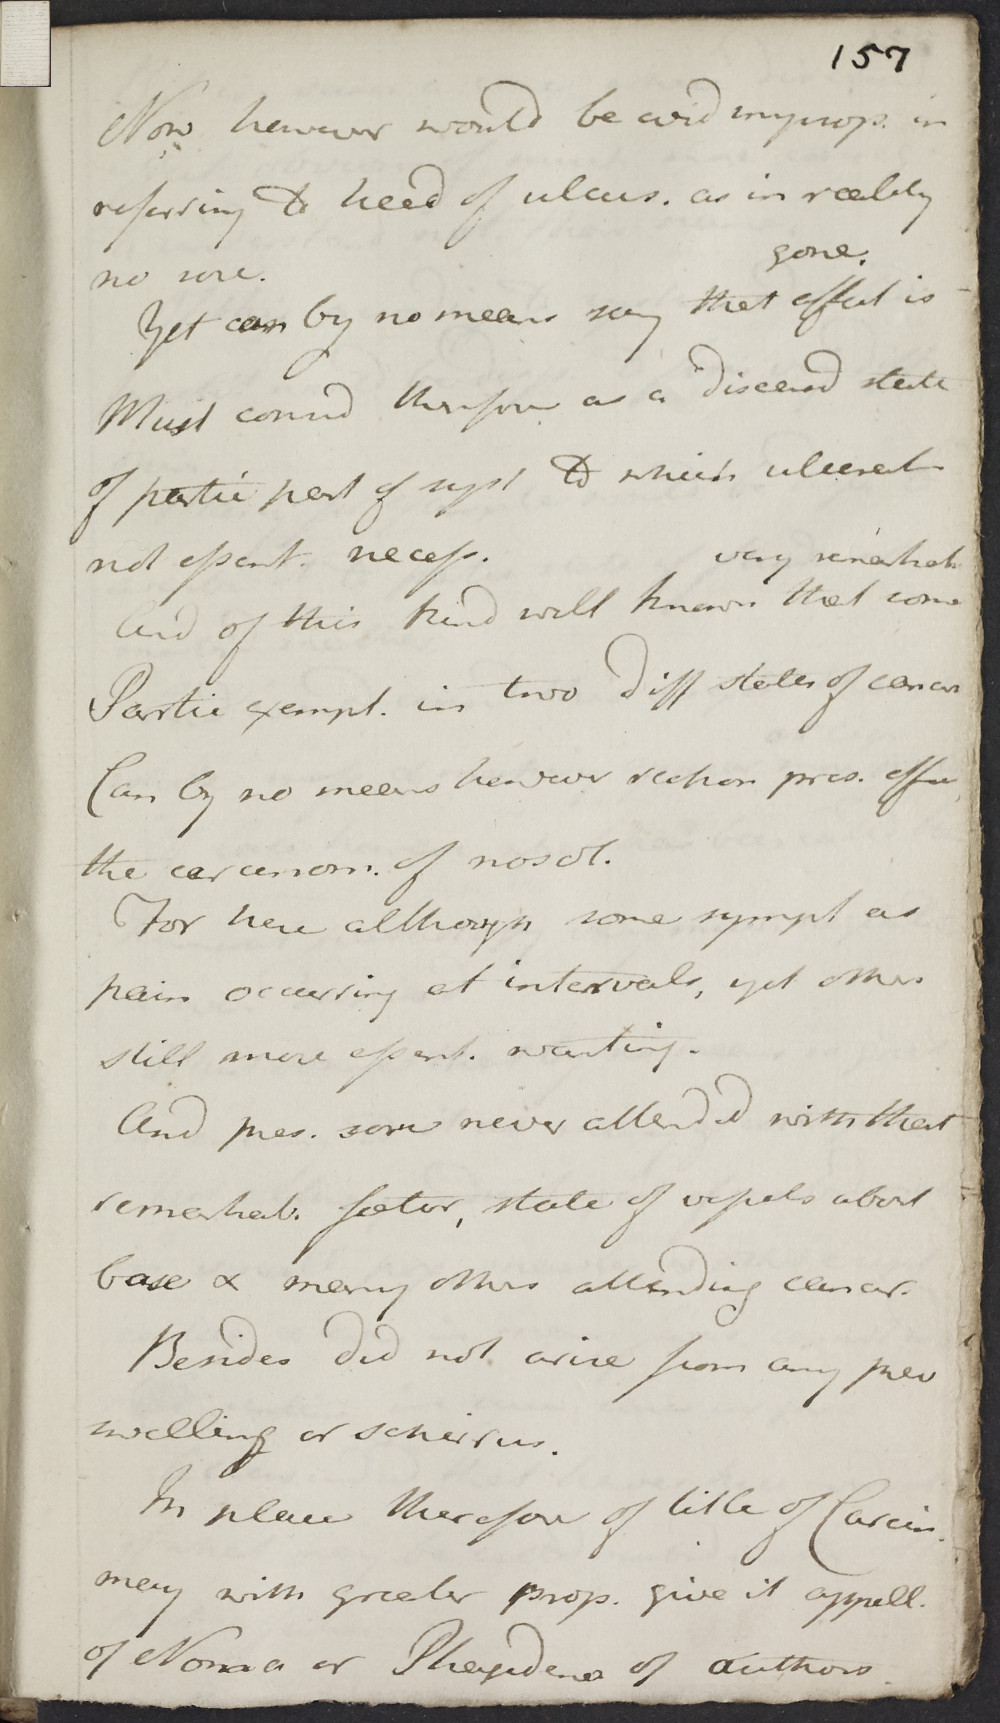 157
Now however would be evid improp. in
referring to head of ulcus. as in reality
no sore.
gone.
Yet can by no means say that affect is
Must consid therefore as a diseased state
of partic part of syst to which ulcerat
not essent. necess.
very remarkab
And of this kind well known that some
Partic exempt. in two diff states of cancer
Can by no means however reckon pres. affec
the carcinom. of nosol.
For here although some sympt as
pain occurring at intervals, yet others
still more essent. wanting.
And pres. sore never attended with that
remarkab. foetor, state of vessels about
base & many others attending cancer.
Besides did not arise from any prev
swelling or schirrus.
In place therefore of title of Carcin.
may with greater prop. give it appell.
of Noma or Phagedena of authors